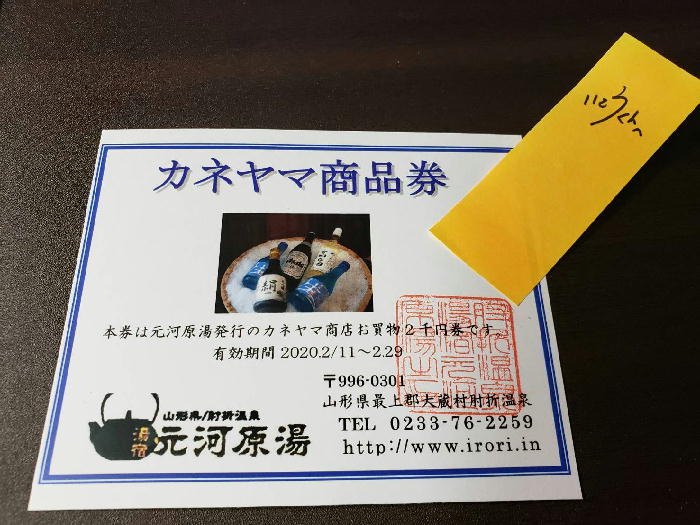 カネヤマ商品券
絹
本券は元河原湯発行のカネヤマ商店お買物2千円券です
有効期間 2020.2/11~2.29
〒996-0301
山形県最上郡大蔵村肘折温泉
TEL 0233-76-2259
http://www.irori.in
山形県/肘折温泉
湯宿
元河原湯